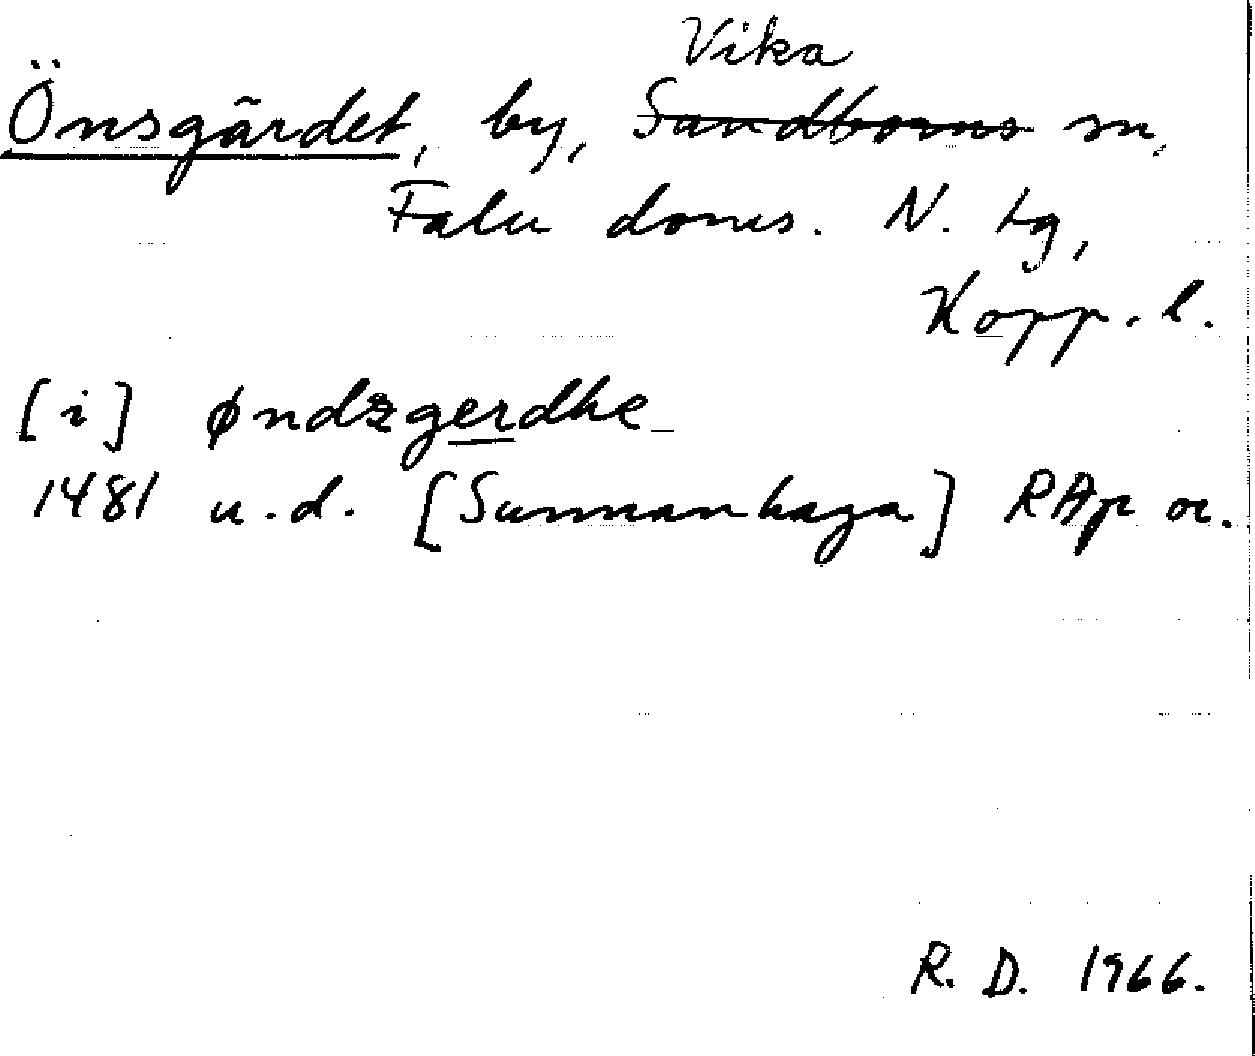 Vika
Önsgärdet, by, Sundborns sn.
Falu doms. N. tg,
Kopp. l.
[i] øndzgerdhe
1481 u.d. [Sunnanhaga] RAp or.
R. D. 1966.